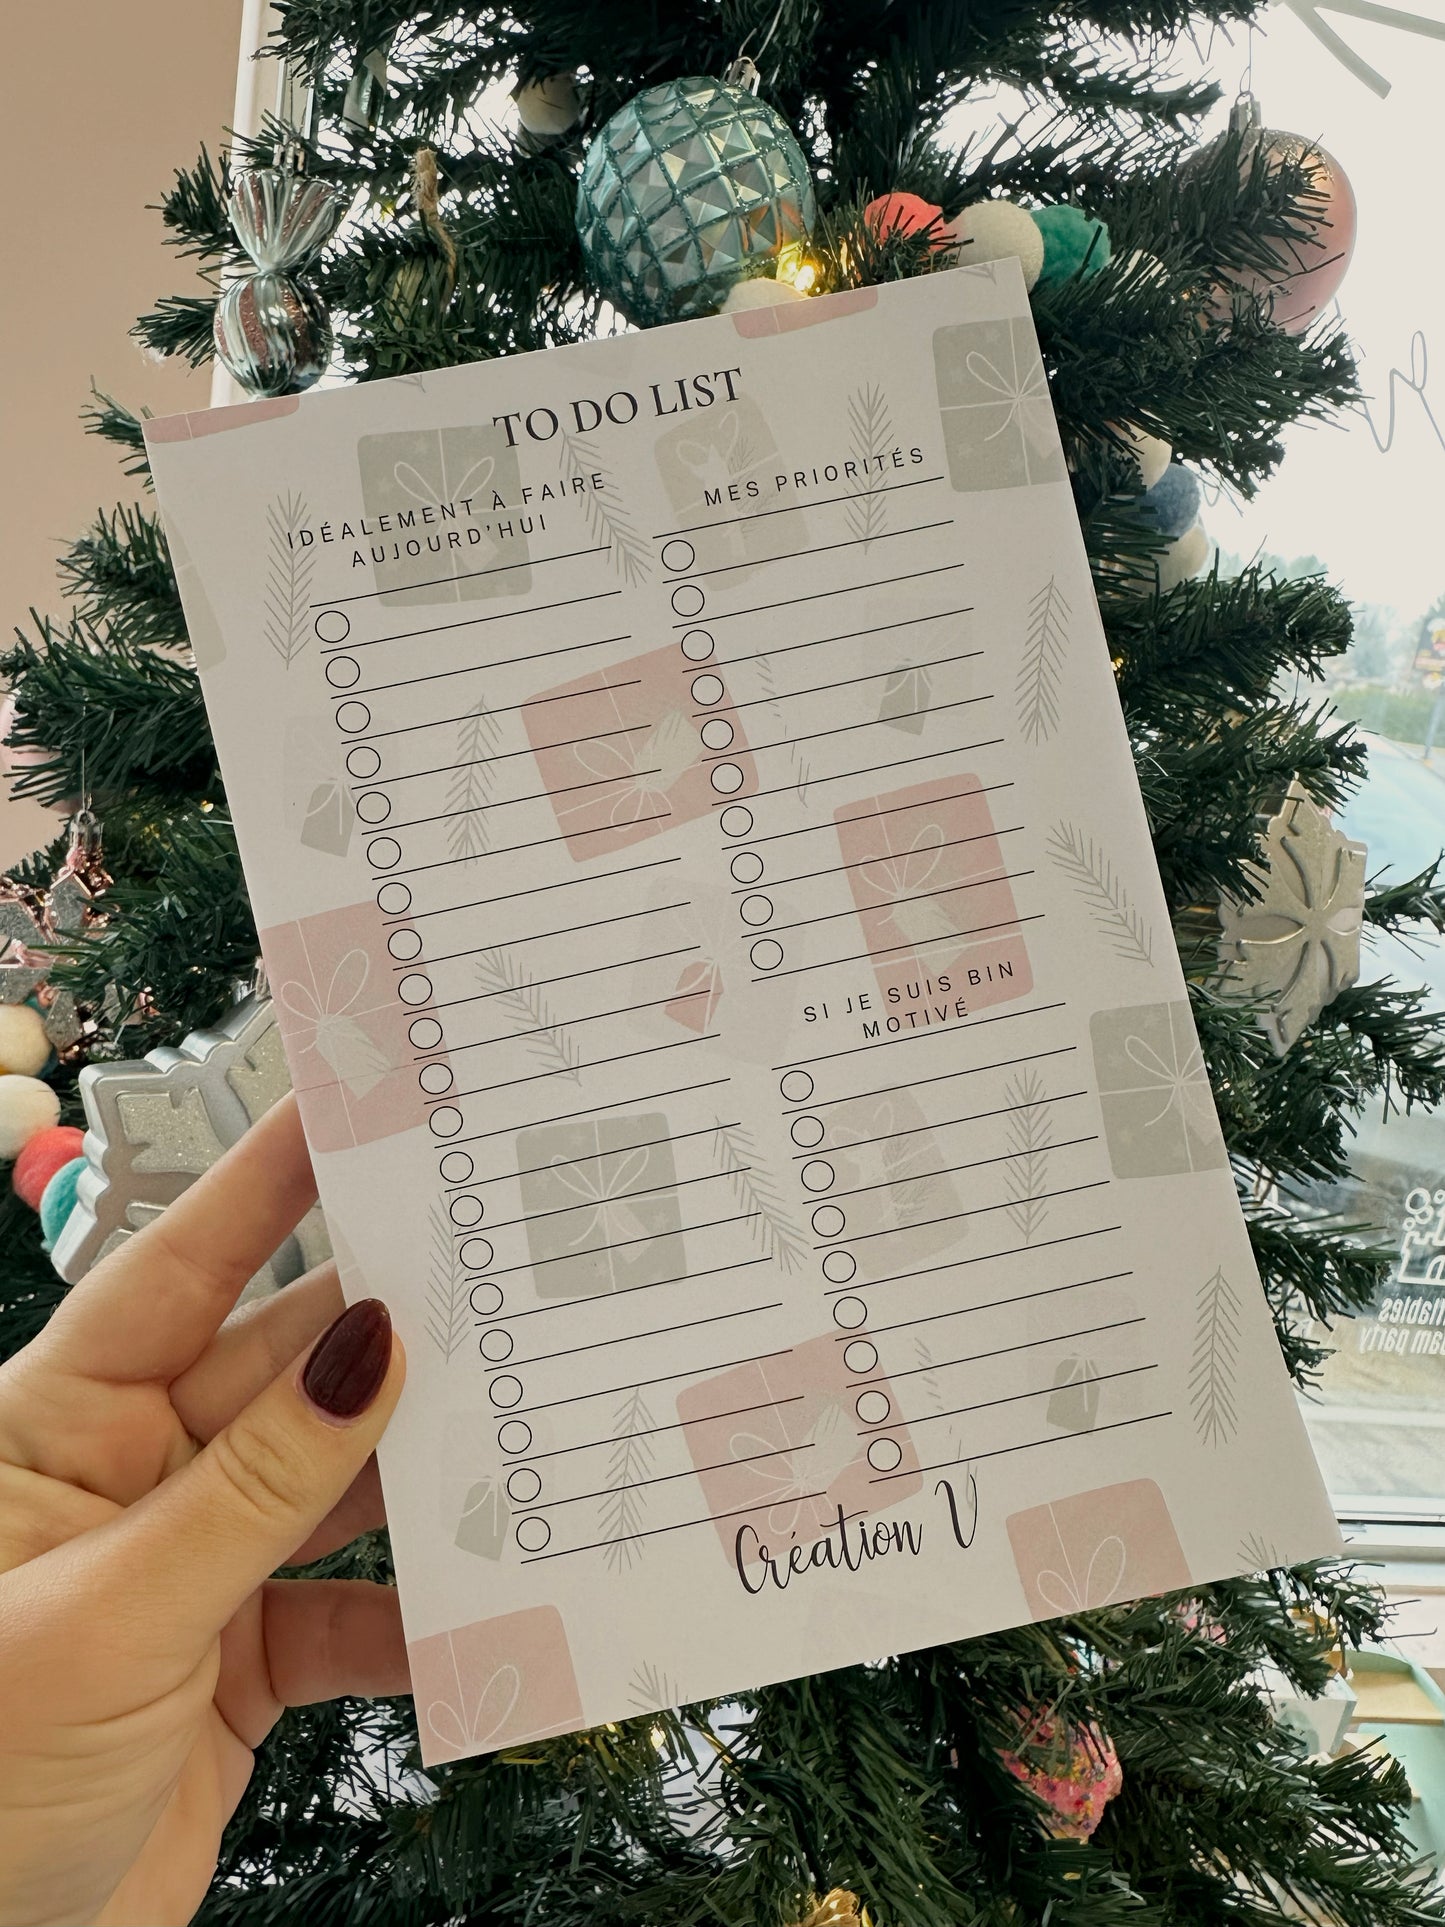 TO DO LIST
IDÉALEMENT À FAIRE
AUJOURD'HUI
MES PRIORITÉS
SI JE SUIS BIN
MOTIVÉ
Création V